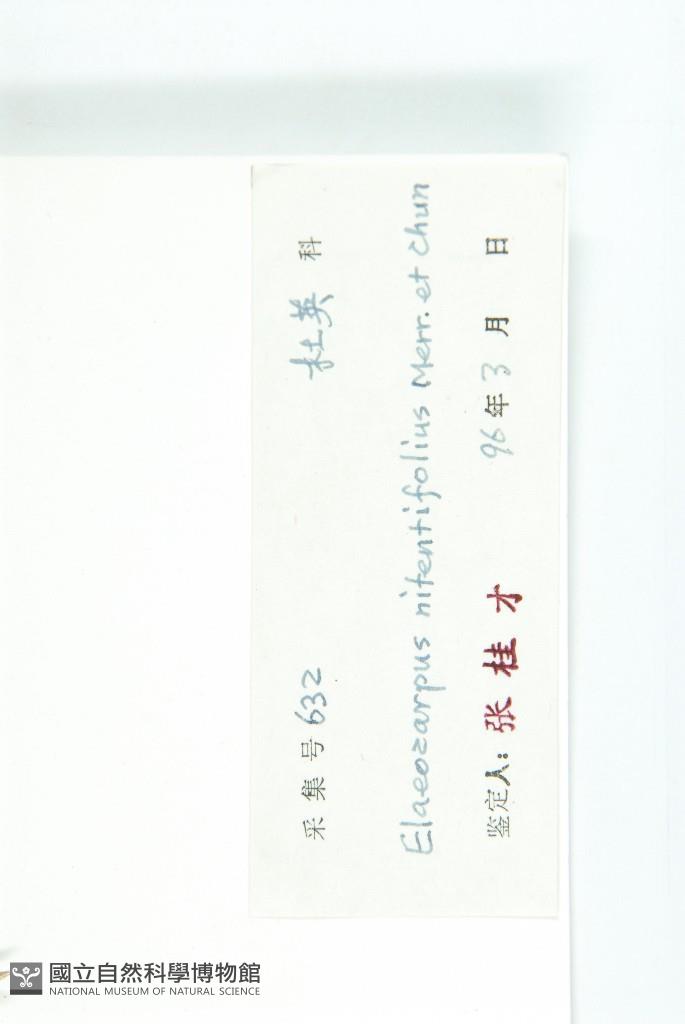 采集号 632 杜英 科
Elaeozarpus nitentifolius Merr. et Chun
鉴定人: 张桂才 96年3月 日
國立自然科學博物館
NATIONAL MUSEUM OF NATURAL SCIENCE